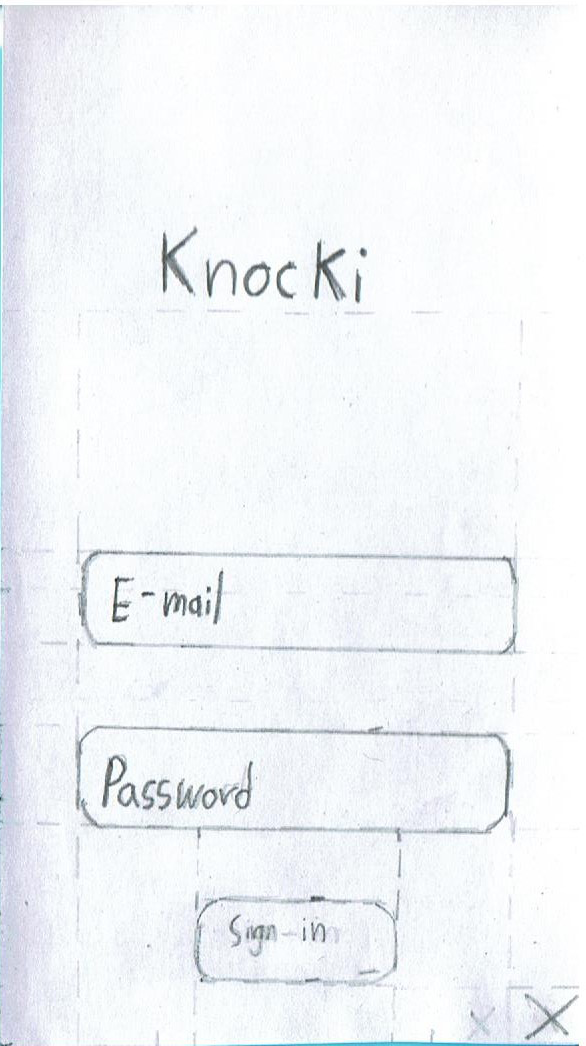 Knocki
E-mail
Password
Sign-in
X X